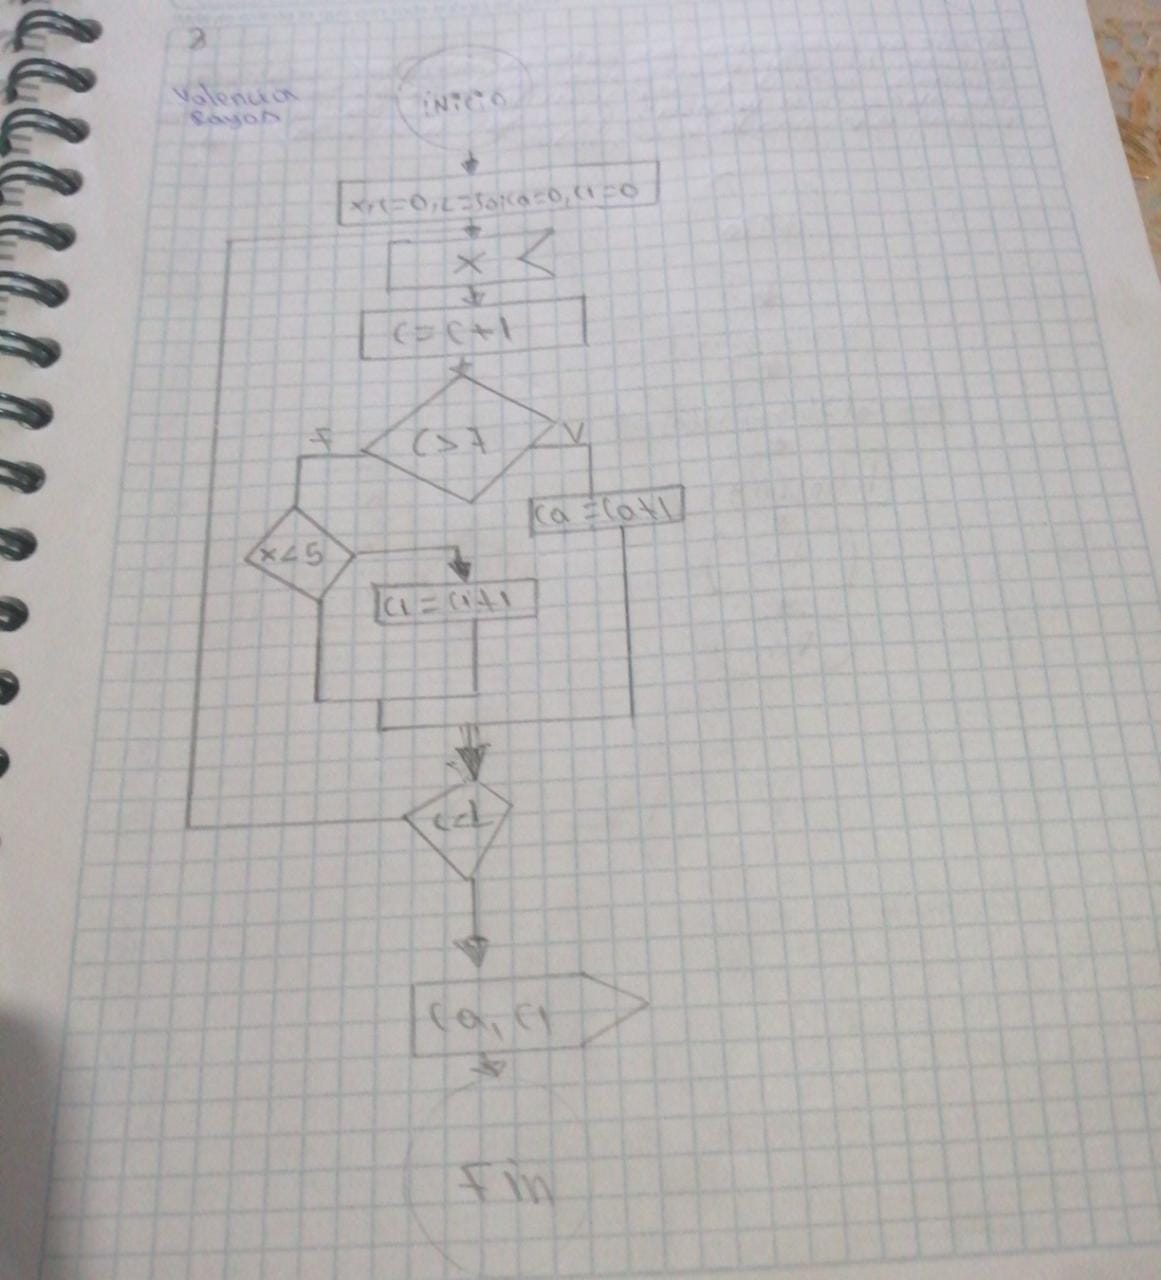 3
Valencia
Bayon
inicio
x, c=0, L=50, ca=0, c1=0
x
c = c+1
c > 7
F
V
ca = ca+1
x < 5
c1 = c1+1
c<L
ca, c1
Fin